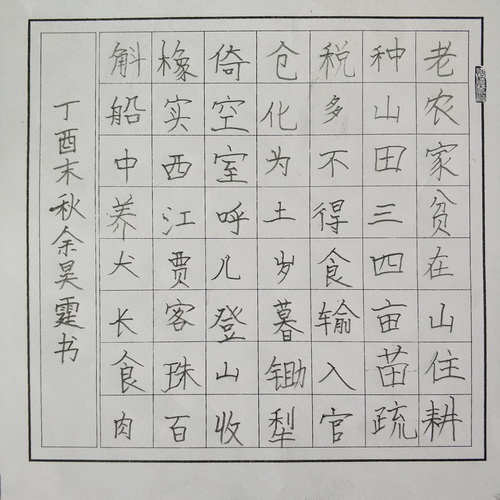 老农家贫在山住耕
种山田三四亩苗疏
税多不得食输入官
仓化为土岁暮锄犁
倚空室呼儿登山收
橡实西江贾客珠百
斛船中养犬长食肉
丁酉末秋余昊霆书